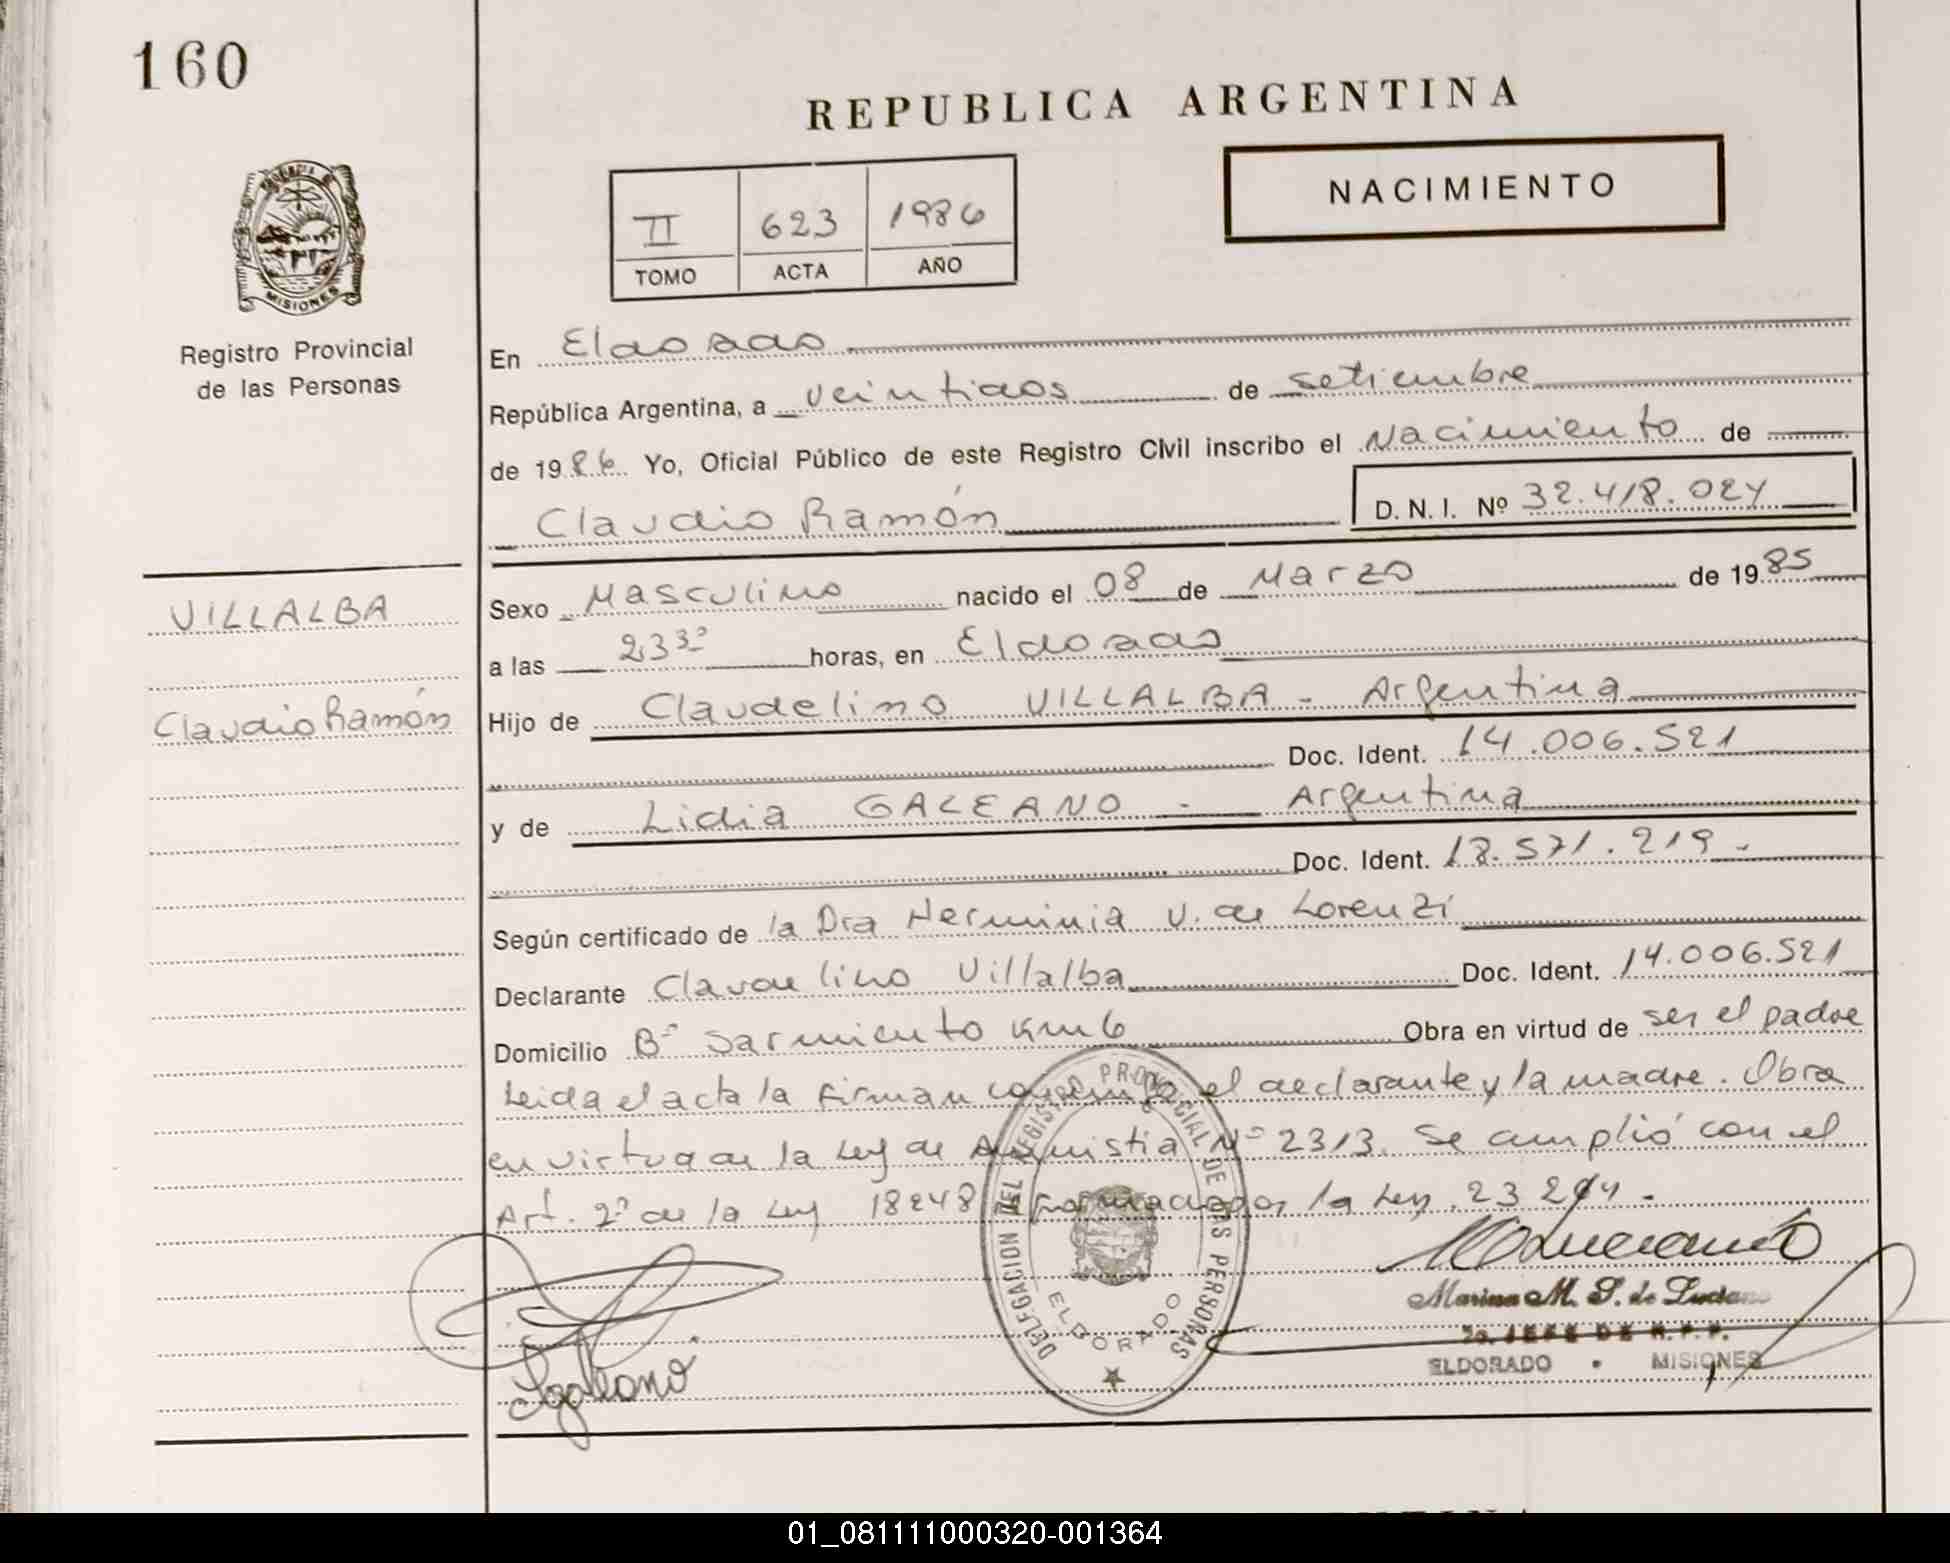 160
REPUBLICA ARGENTINA
NACIMIENTO
II 623 1986
TOMO ACTA AÑO
MISIONES
Registro Provincial
de las Personas
En Eldorado
República Argentina, a veintidos de setiembre
de 1986 Yo, Oficial Público de este Registro Civil inscribo el Nacimiento de
Claudio Ramón D. N. I. Nº 32.418.024
VILLALBA
Claudio Ramón
Sexo Masculino nacido el 08 de Marzo de 1985
a las 23 3º horas, en Eldorado
Hijo de Claudelino VILLALBA - Argentina
Doc. Ident. 14.006.521
y de Lidia GALEANO - Argentina
Doc. Ident. 18.571.219.-
Según certificado de la Dra Herminia V. de Lorenzi
Declarante Claudelino Villalba Doc. Ident. 14.006.521
Domicilio Bº Sarmiento Km 6 Obra en virtud de ser el padre
Leida el acta la firman conmigo el declarante y la madre. Obra
en virtud de la Ley de Amnistia Nº 2313. Se amplió con el
Art. 2º de la Ley 18248 por la Ley. 23264.-
DELEGACION DEL REGISTRO PROVINCIAL DE LAS PERSONAS
ELDORADO
Marina M. S. de Luciano
2o. JEFE DE R.P.P.
ELDORADO • MISIONES
Lgaleano
01_081111000320-001364